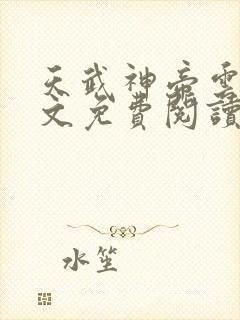 天武神帝雲
文免費閱讀
水笙